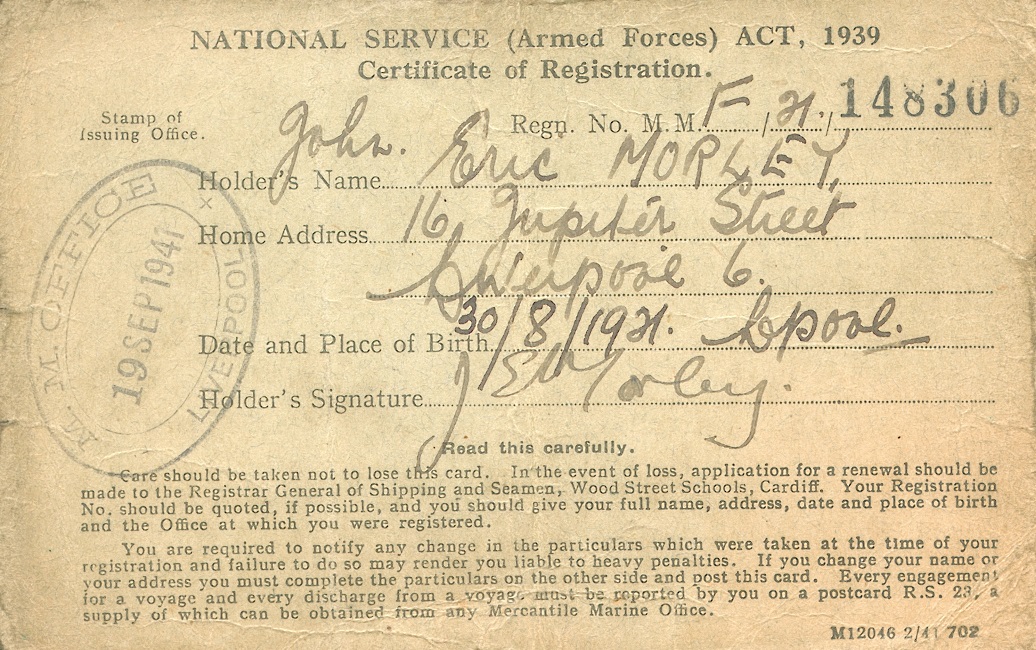 NATIONAL SERVICE (Armed Forces) ACT, 1939
Certificate of Registration.
Stamp of
Issuing Office.
Regn. No. M.M. F / 21. / 148306
Holder's Name John. Eric MORLEY,
Home Address 16, Jupiter Street
Liverpool 6.
Date and Place of Birth 30/8/1921. Lpool.
Holder's Signature J E Morley.
M. M. OFFICE
19 SEP 1941
LIVERPOOL
Read this carefully.
Care should be taken not to lose this card. In the event of loss, application for a renewal should be
made to the Registrar General of Shipping and Seamen, Wood Street Schools, Cardiff. Your Registration
No. should be quoted, if possible, and you should give your full name, address, date and place of birth
and the Office at which you were registered.
You are required to notify any change in the particulars which were taken at the time of your
registration and failure to do so may render you liable to heavy penalties. If you change your name or
your address you must complete the particulars on the other side and post this card. Every engagement
for a voyage and every discharge from a voyage must be reported by you on a postcard R.S. 23, a
supply of which can be obtained from any Mercantile Marine Office.
M12046 2/41 702